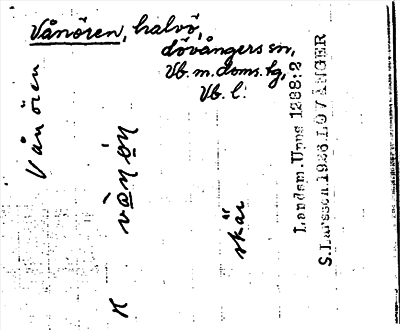 Vånören, halvö,
Lövångers sn,
Vb. m. doms. hg,
Vb. l.
Vånören
K
skär
Landsm. Upps 1288:2
S. Larsson 1926. LÖVÅNGER